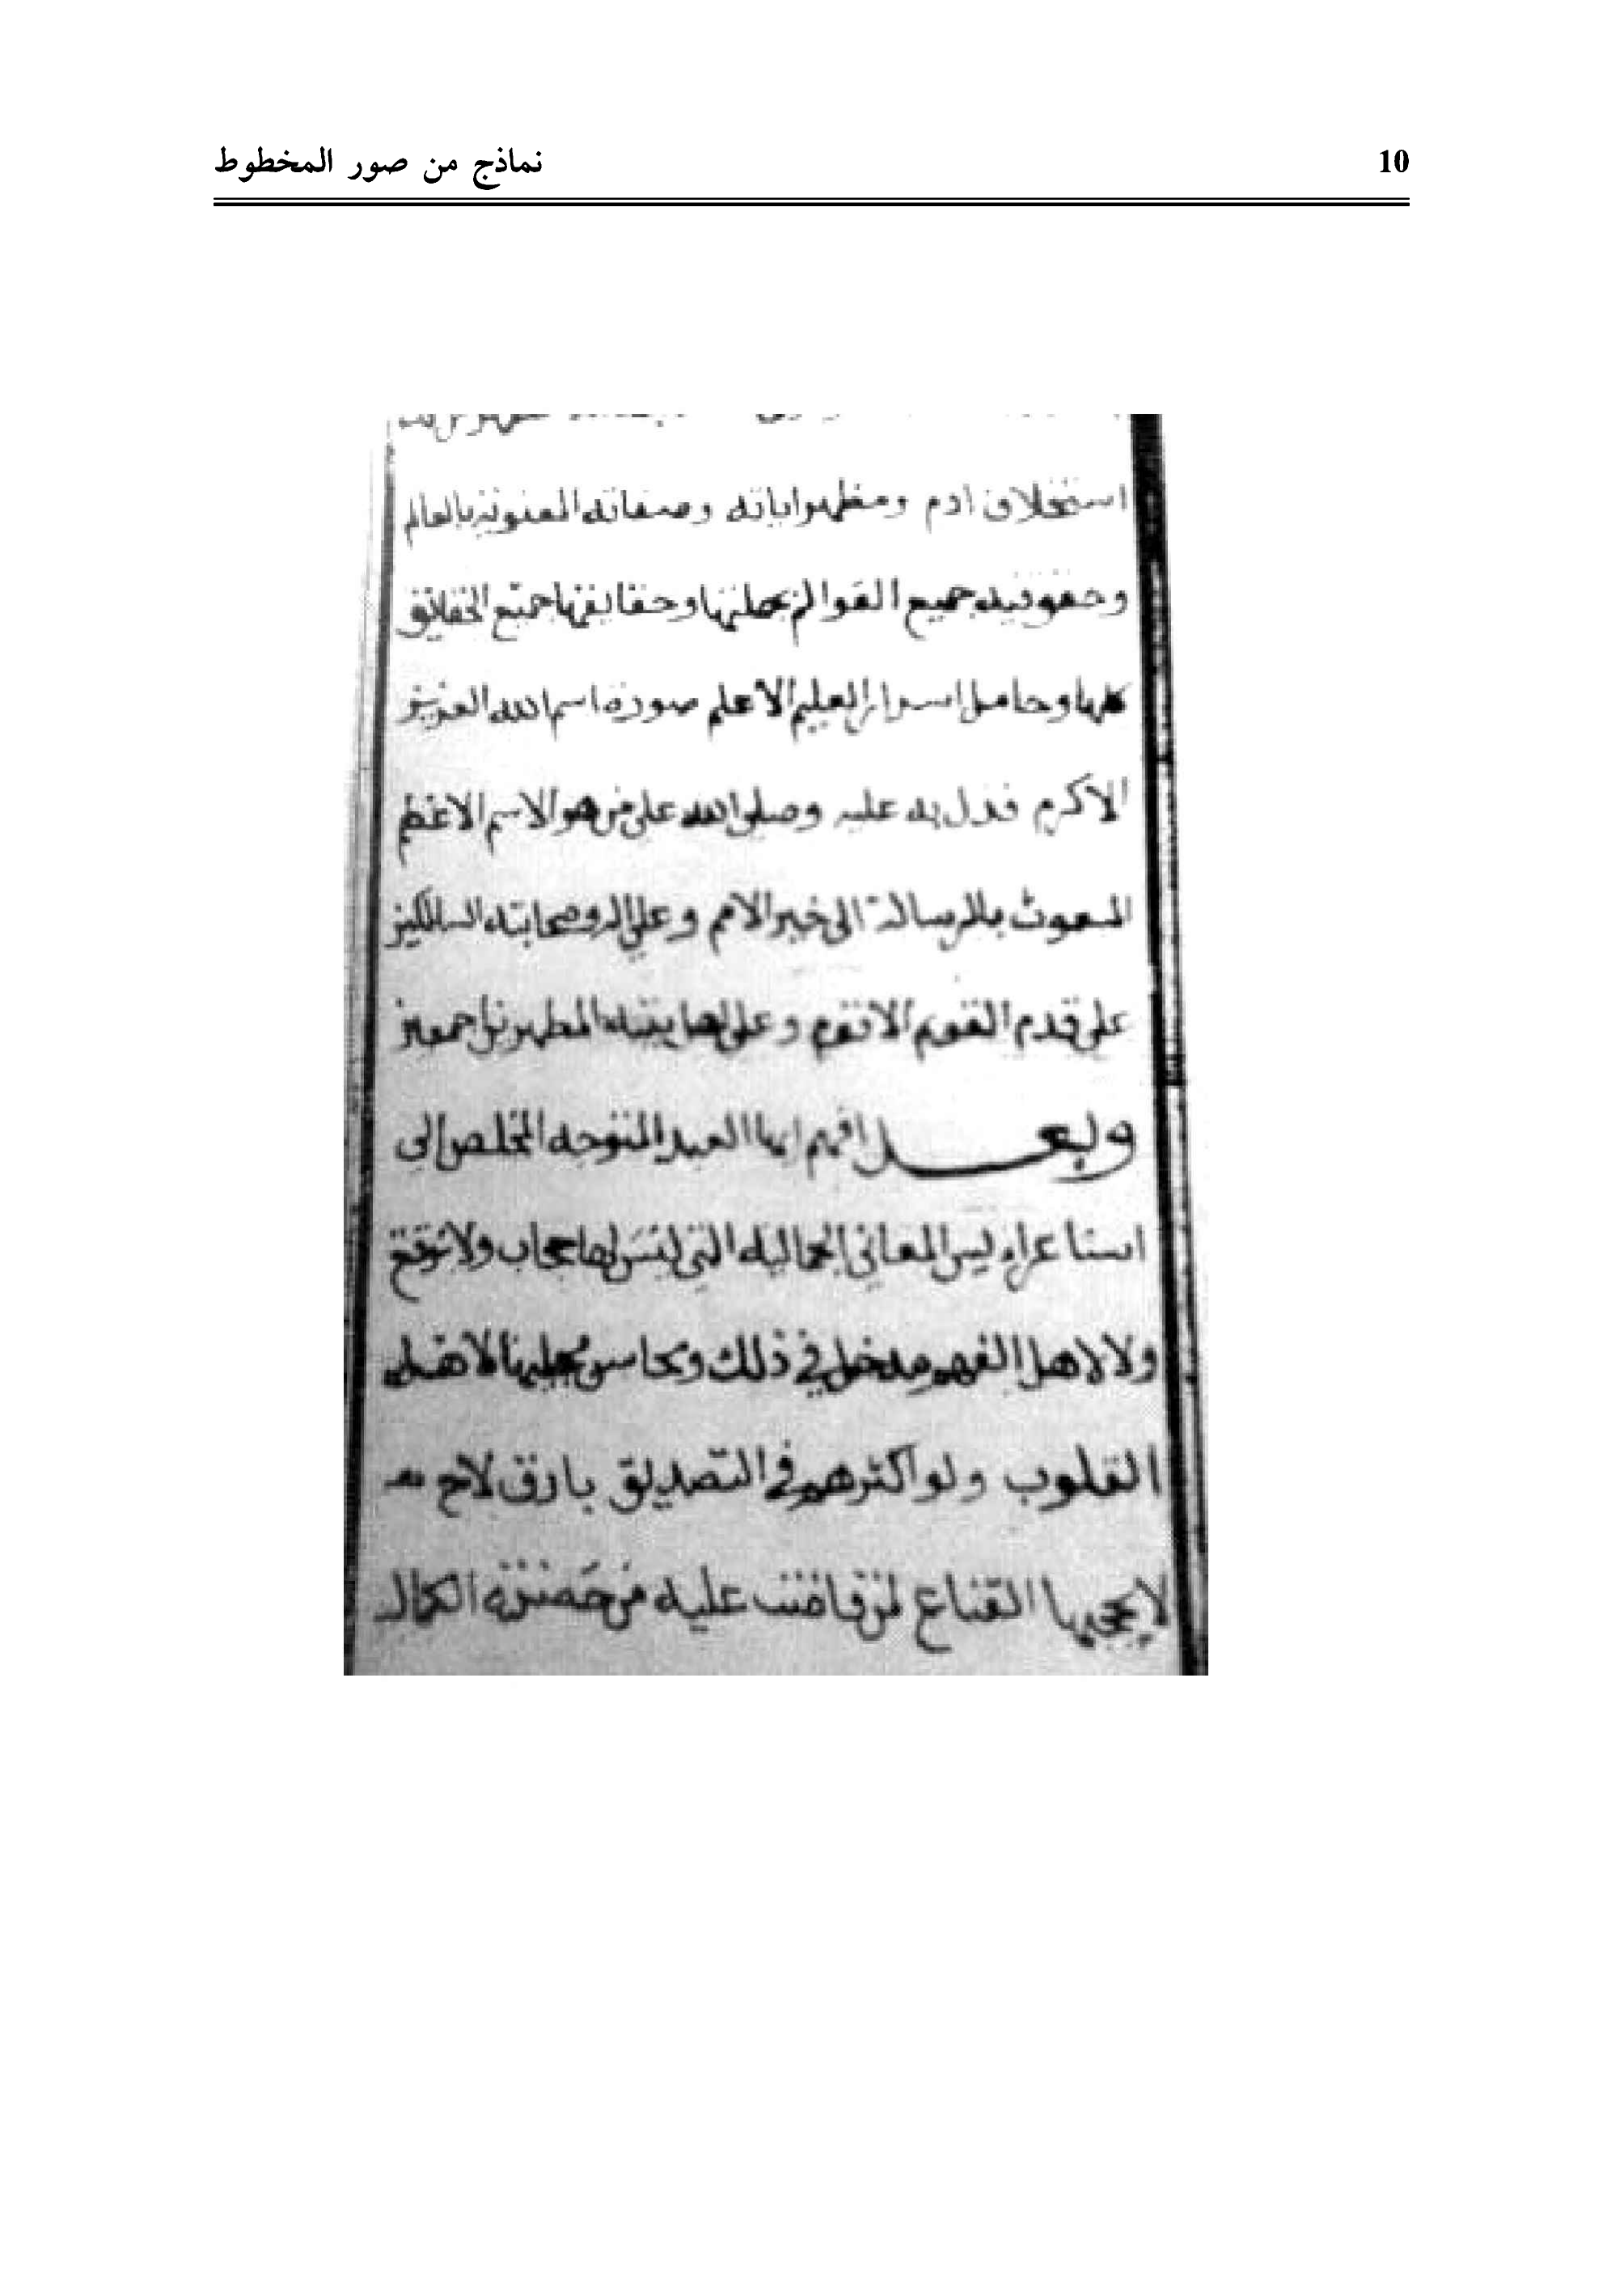 10
نماذج من صور المخطوط
استخلاف ادم ومظهر اياته وصفاته المعنونة بالعالم
وحقق فيه جميع العوالم بجملتها وحقايقها جميع الحقائق
كلها وحامل اسرار العليم الاعلم صورة اسم الله العزيز
الاكرم فدل به عليه وصلى الله على من هو الاسم الاعظم
المبعوث بالرسالة الى خير الامم وعلى اله وصحابته السالكين
على قدم القويم الاقوم وعلى اهل بيته المطهرين اجمعين
وبعد افهم ايها العبد المتوجه المخلص الى
اسنا عرايس المعاني الجمالية التي ليس لها حجاب ولا برقع
ولا لاهل الفهم مدخل في ذلك ومحاسن
القلوب ولو اكثرهم في التصديق بارق لاح
لا يحجبها القناع لمن فاضت عليه من حضرة الكمال